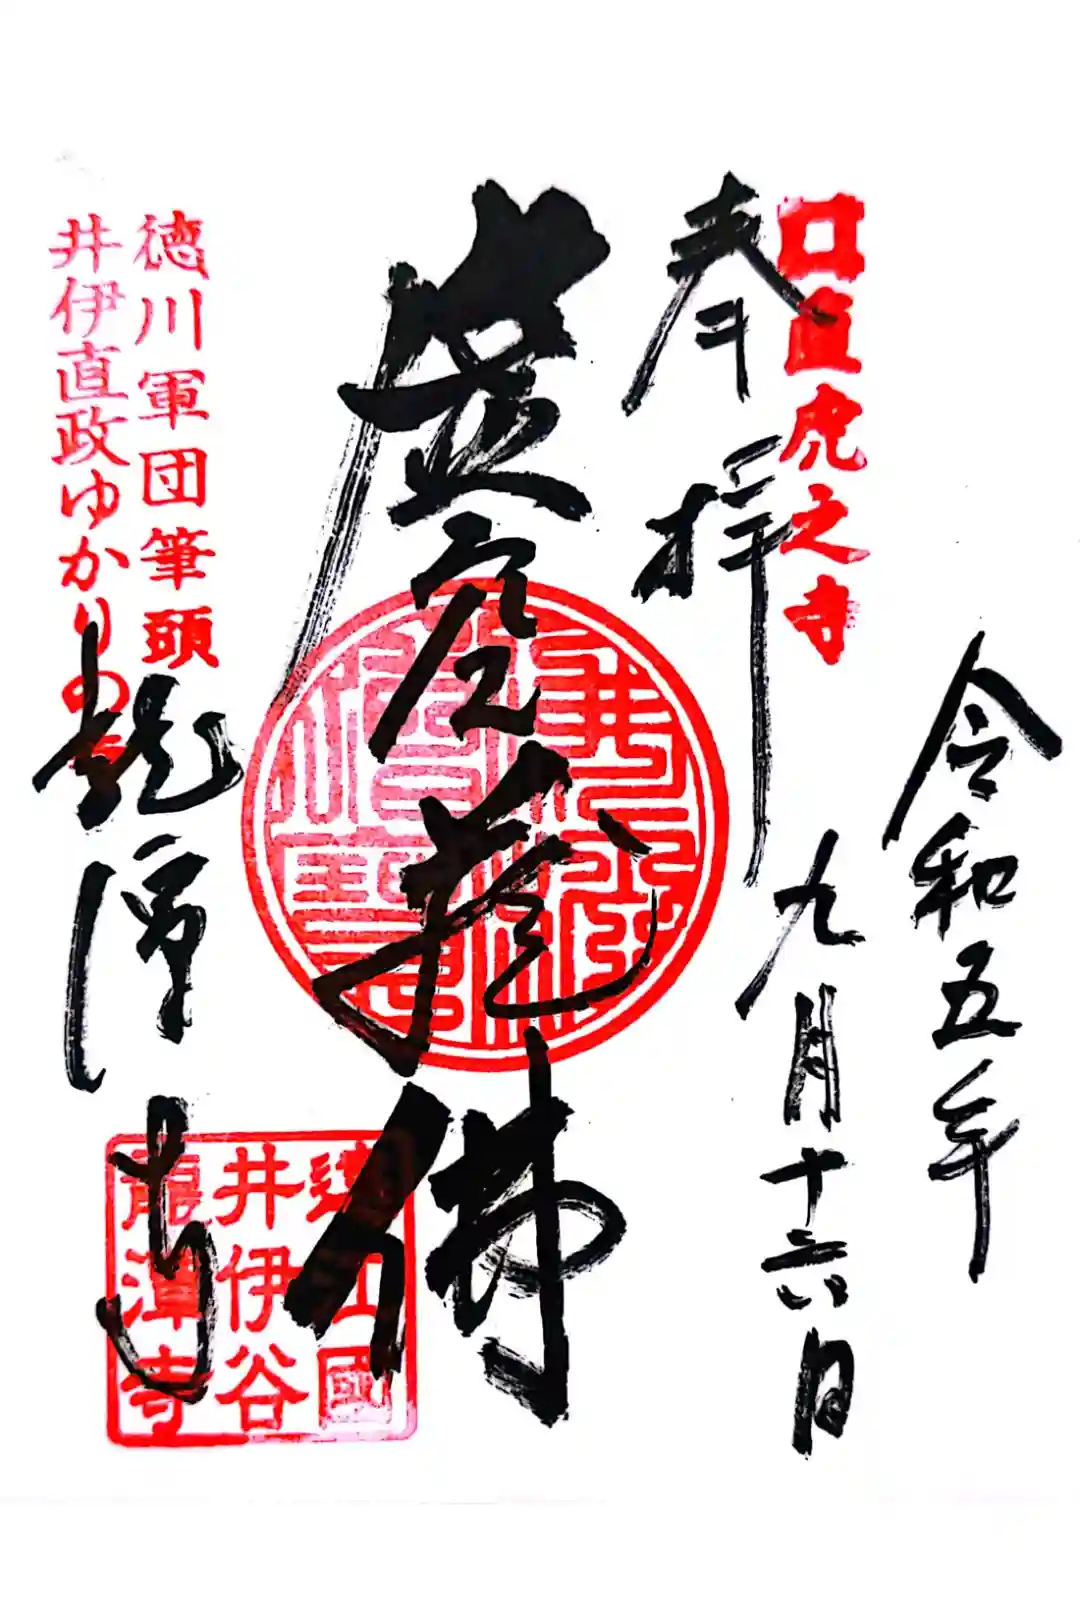 令和五年
九月十六日
直虎之寺
奉拝
虚空蔵佛
徳川軍団筆頭
井伊直政ゆかりの
龍潭寺
遠江國
井伊谷
龍潭寺